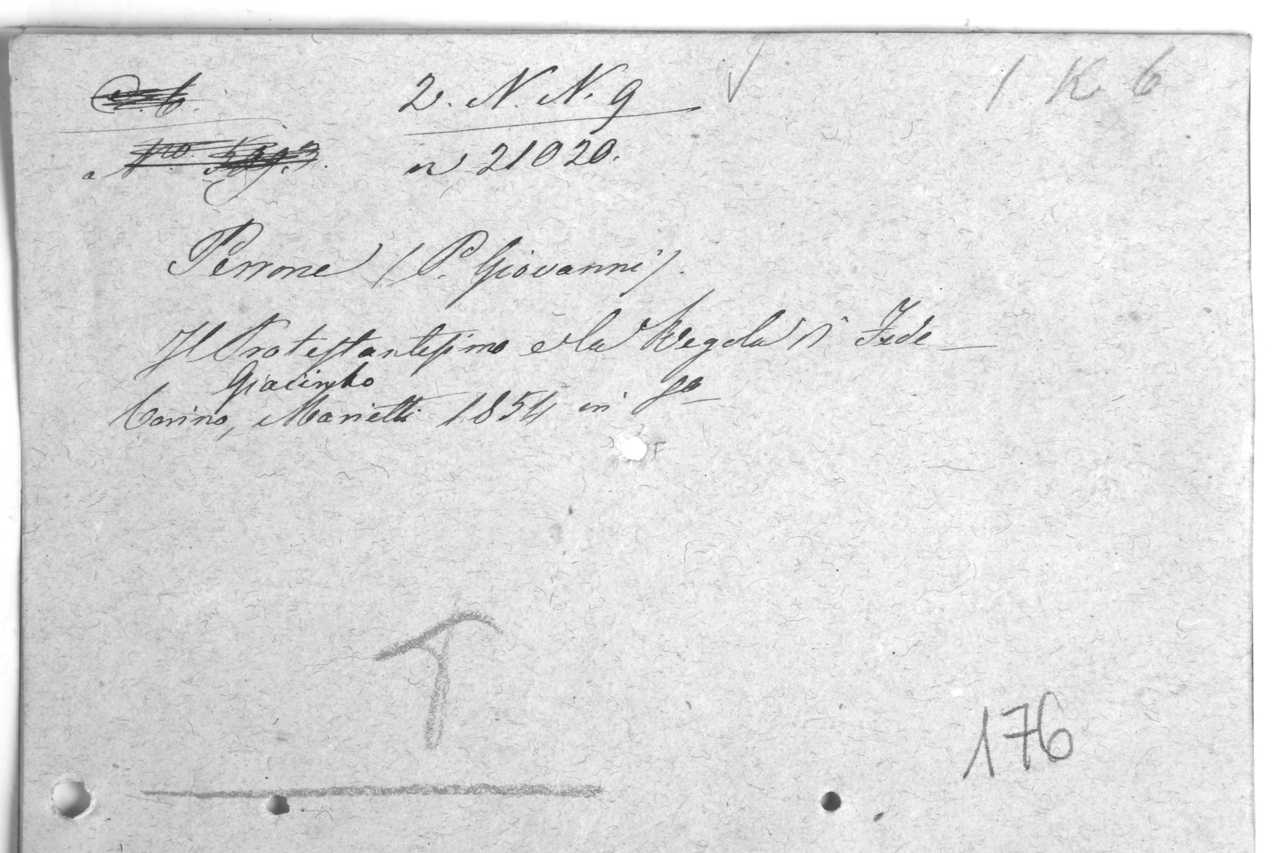 2. N. N. 9
1 K 6
n 21020.
Perrone (P. Giovanni).
Il Protestantesimo e la Regola di Fede
Giacinto
Torino, Marietti 1854 in 8º
T
176